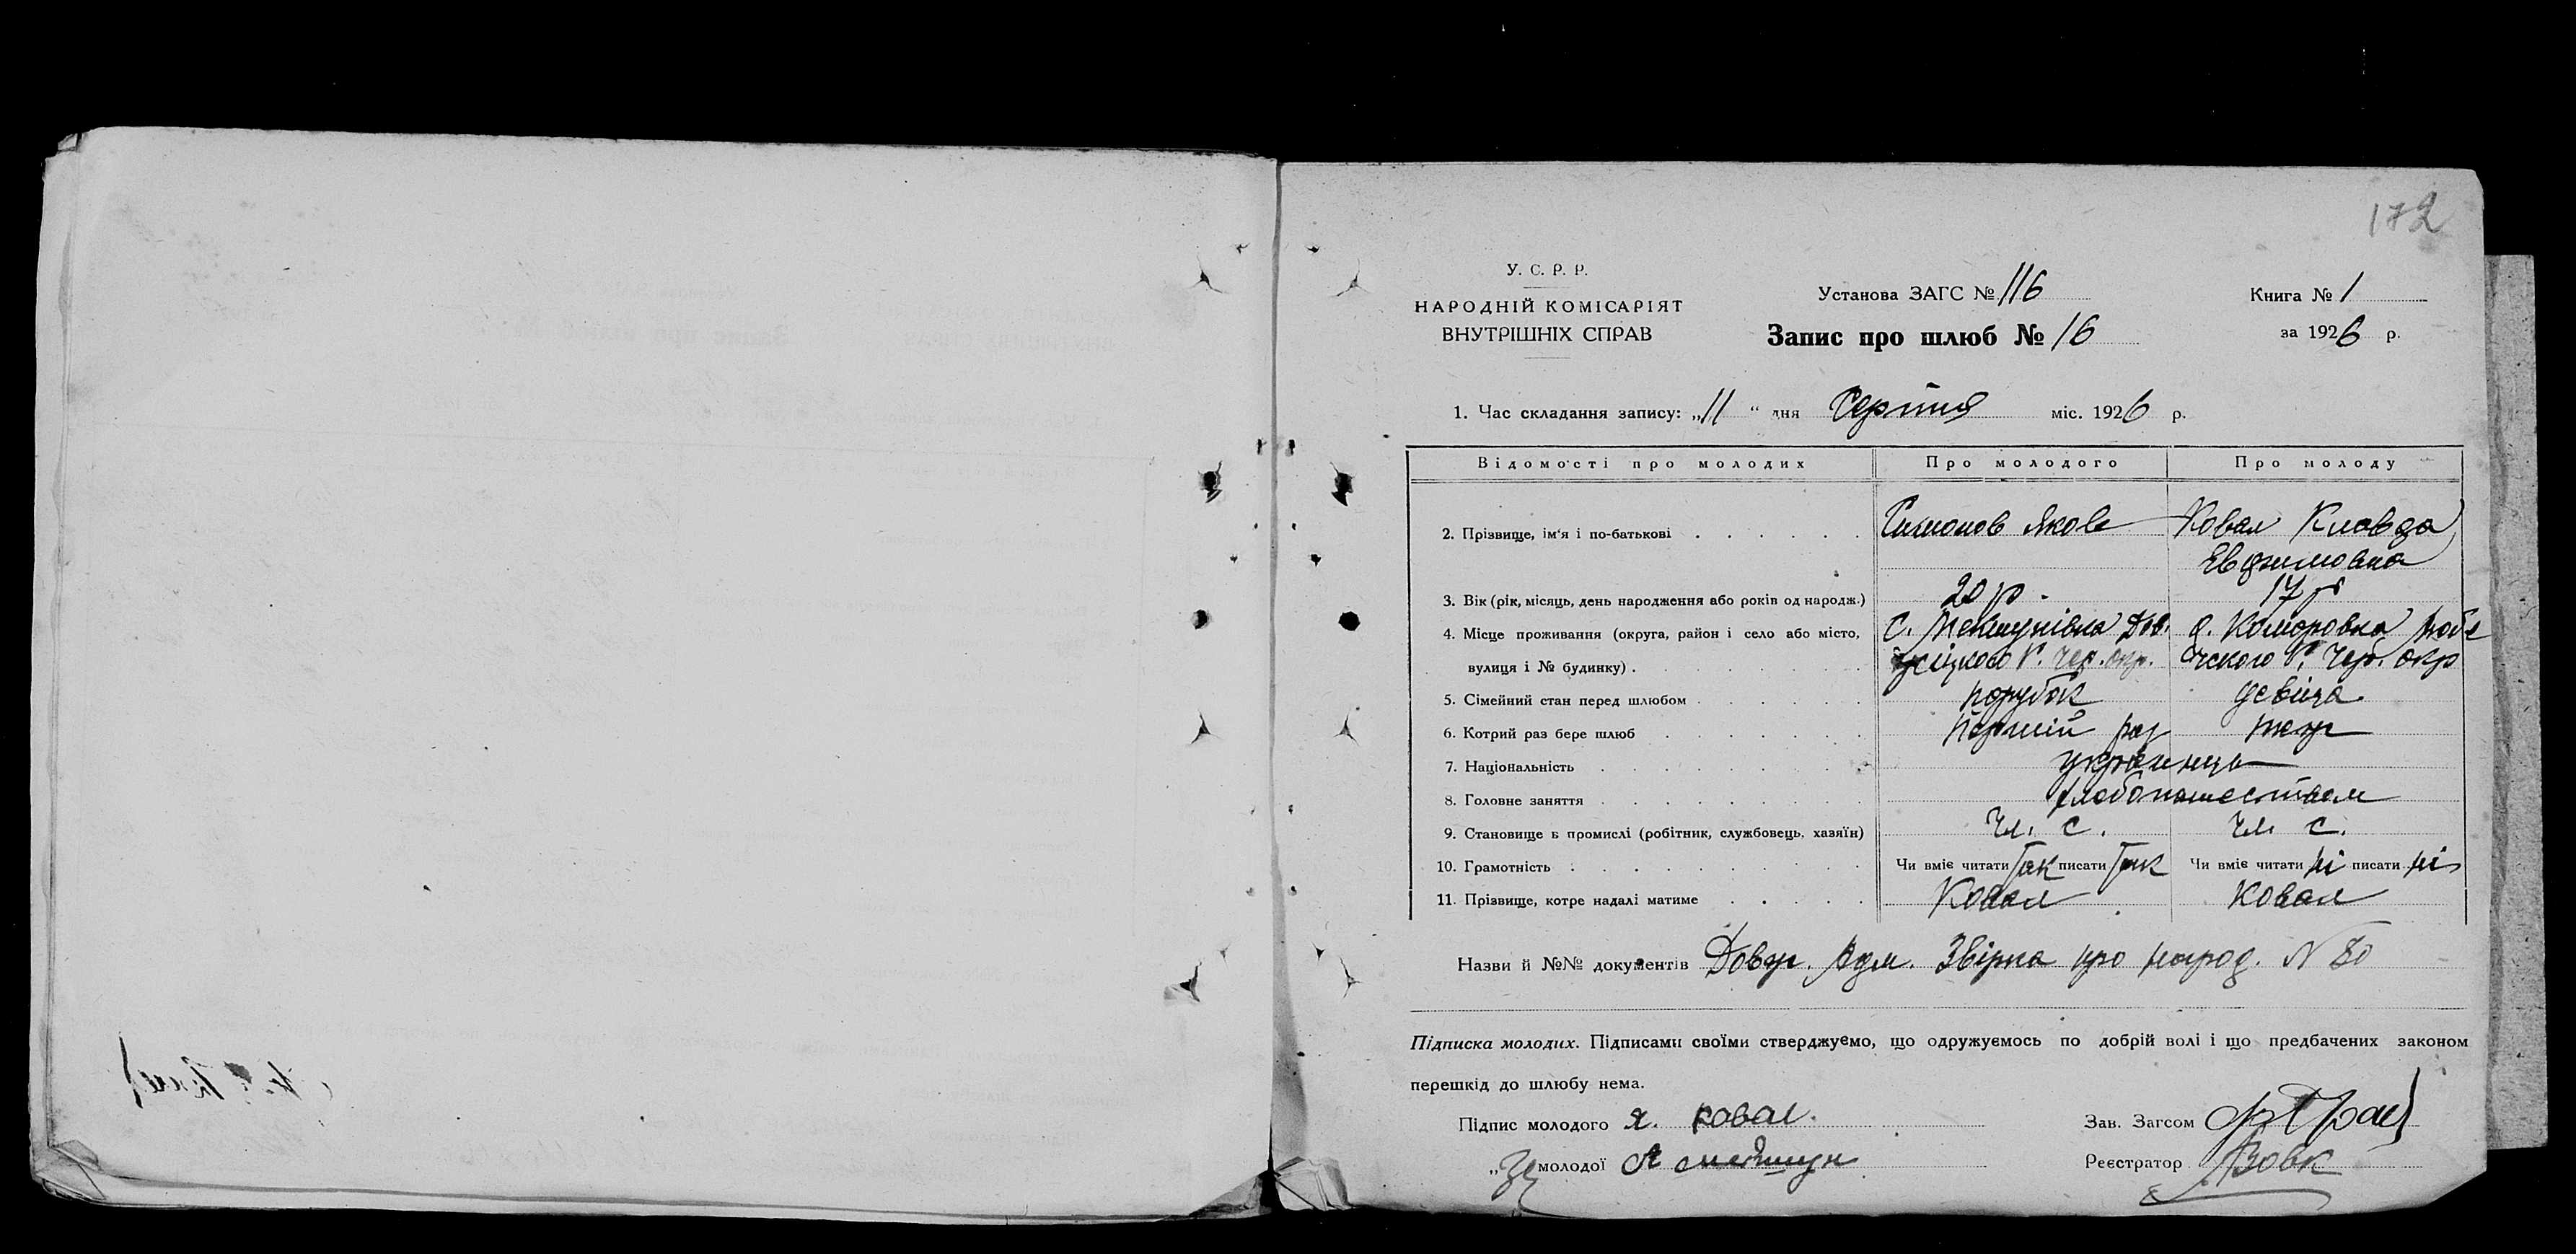 172
У. С. Р. Р.
НАРОДНІЙ КОМІСАРІЯТ
ВНУТРІШНІХ СПРАВ
Установа ЗАГС № 116
Запис про шлюб № 16
Книга № 1
за 1926 р.
1. Час складання запису: „11“ дня Серпня міс. 1926 р.
Відомості про молодих Про молодого Про молоду
2. Прізвище, ім'я і по-батькові Симонов Яков Ковал Клавда
Евдяимовна
3. Вік (рік, місяць, день народження або років од народж.) 20 р. 17 р
4. Місце проживання (округа, район і село або місто, с. д. Коморовка Любе
вулиця і № будинку) Р. Чер. окр. чского Р. Чер. окр
5. Сімейний стан перед шлюбом парубок девіца
6. Котрий раз бере шлюб Перший раз
7. Національність українца
8. Головне заняття хлебопашеством
9. Становище в промислі (робітник, службовець, хазяїн) Чл. с. Чл. с.
10. Грамотність Чи вміє читати Так писати Так Чи вміє читати ні писати ні
11. Прізвище, котре надалі матиме Ковал Ковал
Назви й №№ документів Довар. Адм. Звірка про народ. N 80
Підписка молодих. Підписами своїми стверджуємо, що одружуємось по добрій волі і що предбачених законом
перешкід до шлюбу нема.
Підпис молодого Я. Ковал.
Зав. Загсом
„ молодої
Реєстратор Вовк